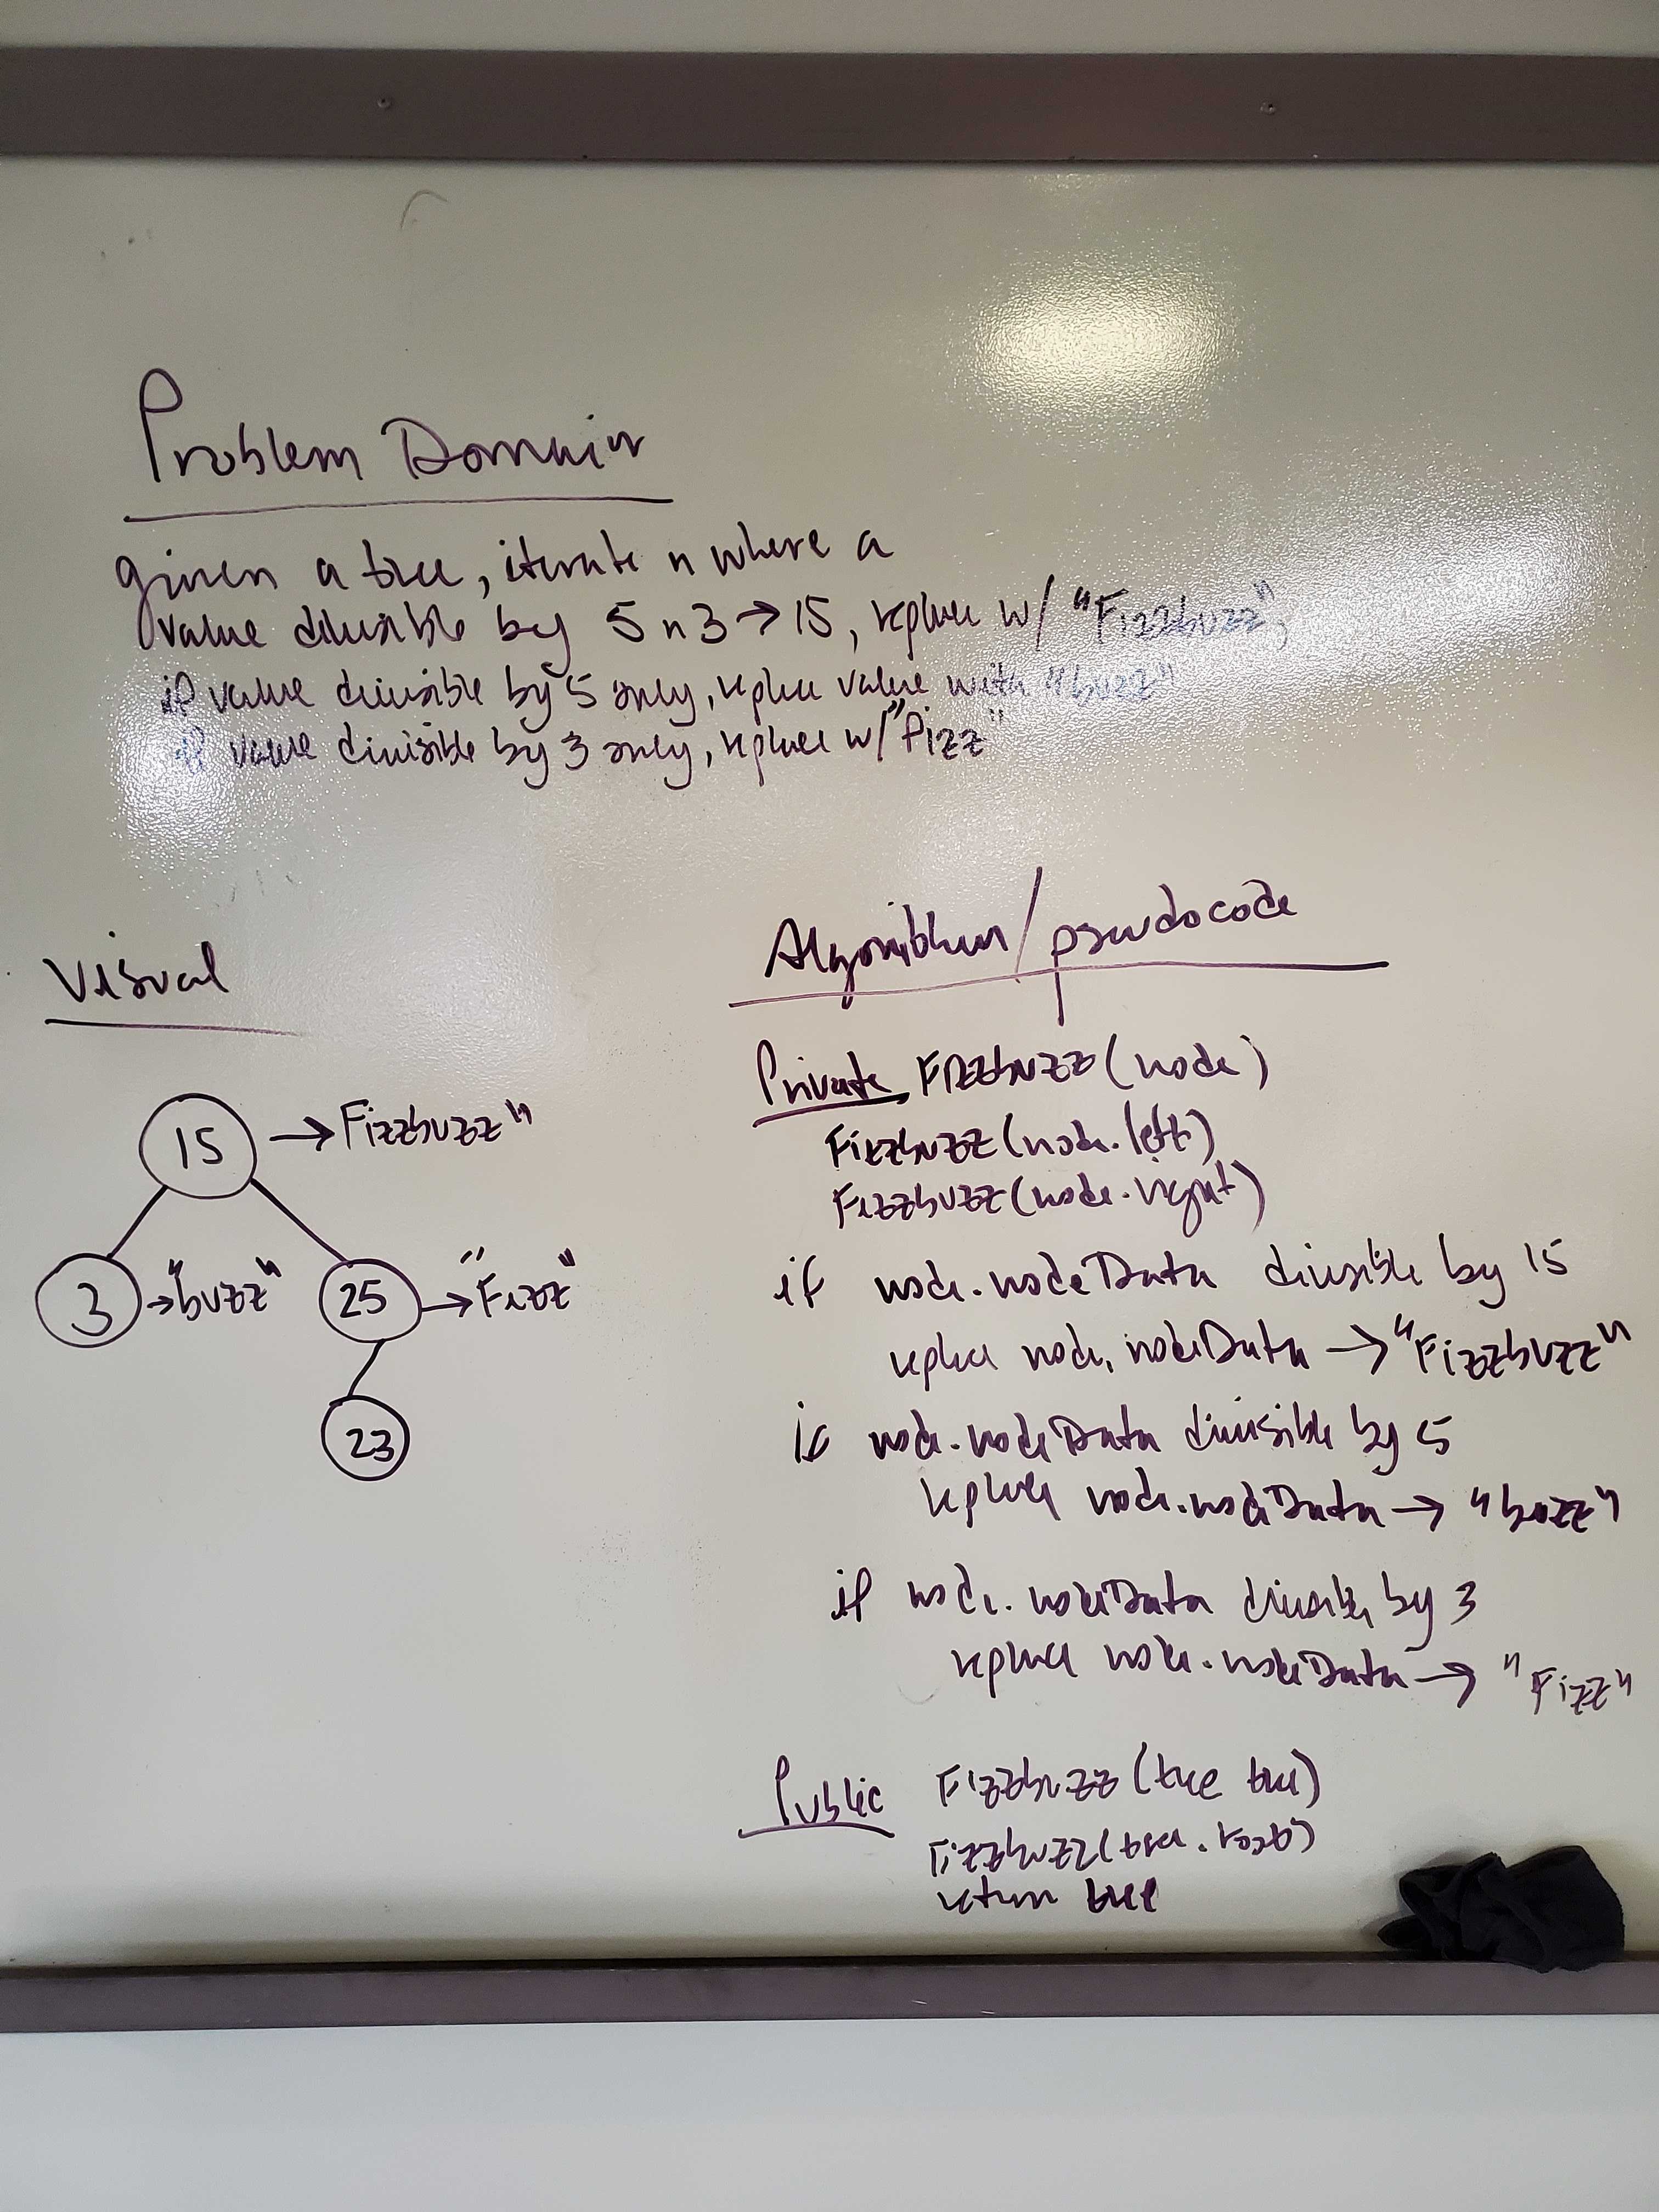 Problem Domain
given a tree, iterate n where a
value divisible by 5 n 3 → 15, replace w/ "Fizzbuzz",
if value divisible by 5 only, replace value with "buzz"
if value divisible by 3 only, replace w/ "fizz"
Visual
15 → Fizzbuzz"
3 → "buzz" 25 → "Fizz"
23
Algorithm/pseudocode
Private Fizzbuzz(node)
Fizzbuzz(node.left)
Fizzbuzz(node.right)
if node.nodeData divisible by 15
replace node.nodeData → "Fizzbuzz"
if node.nodeData divisible by 5
replace node.nodeData → "buzz"
if node.nodeData divisible by 3
replace node.nodeData → "Fizz"
Public Fizzbuzz(tree tree)
Fizzbuzz(tree.root)
return tree